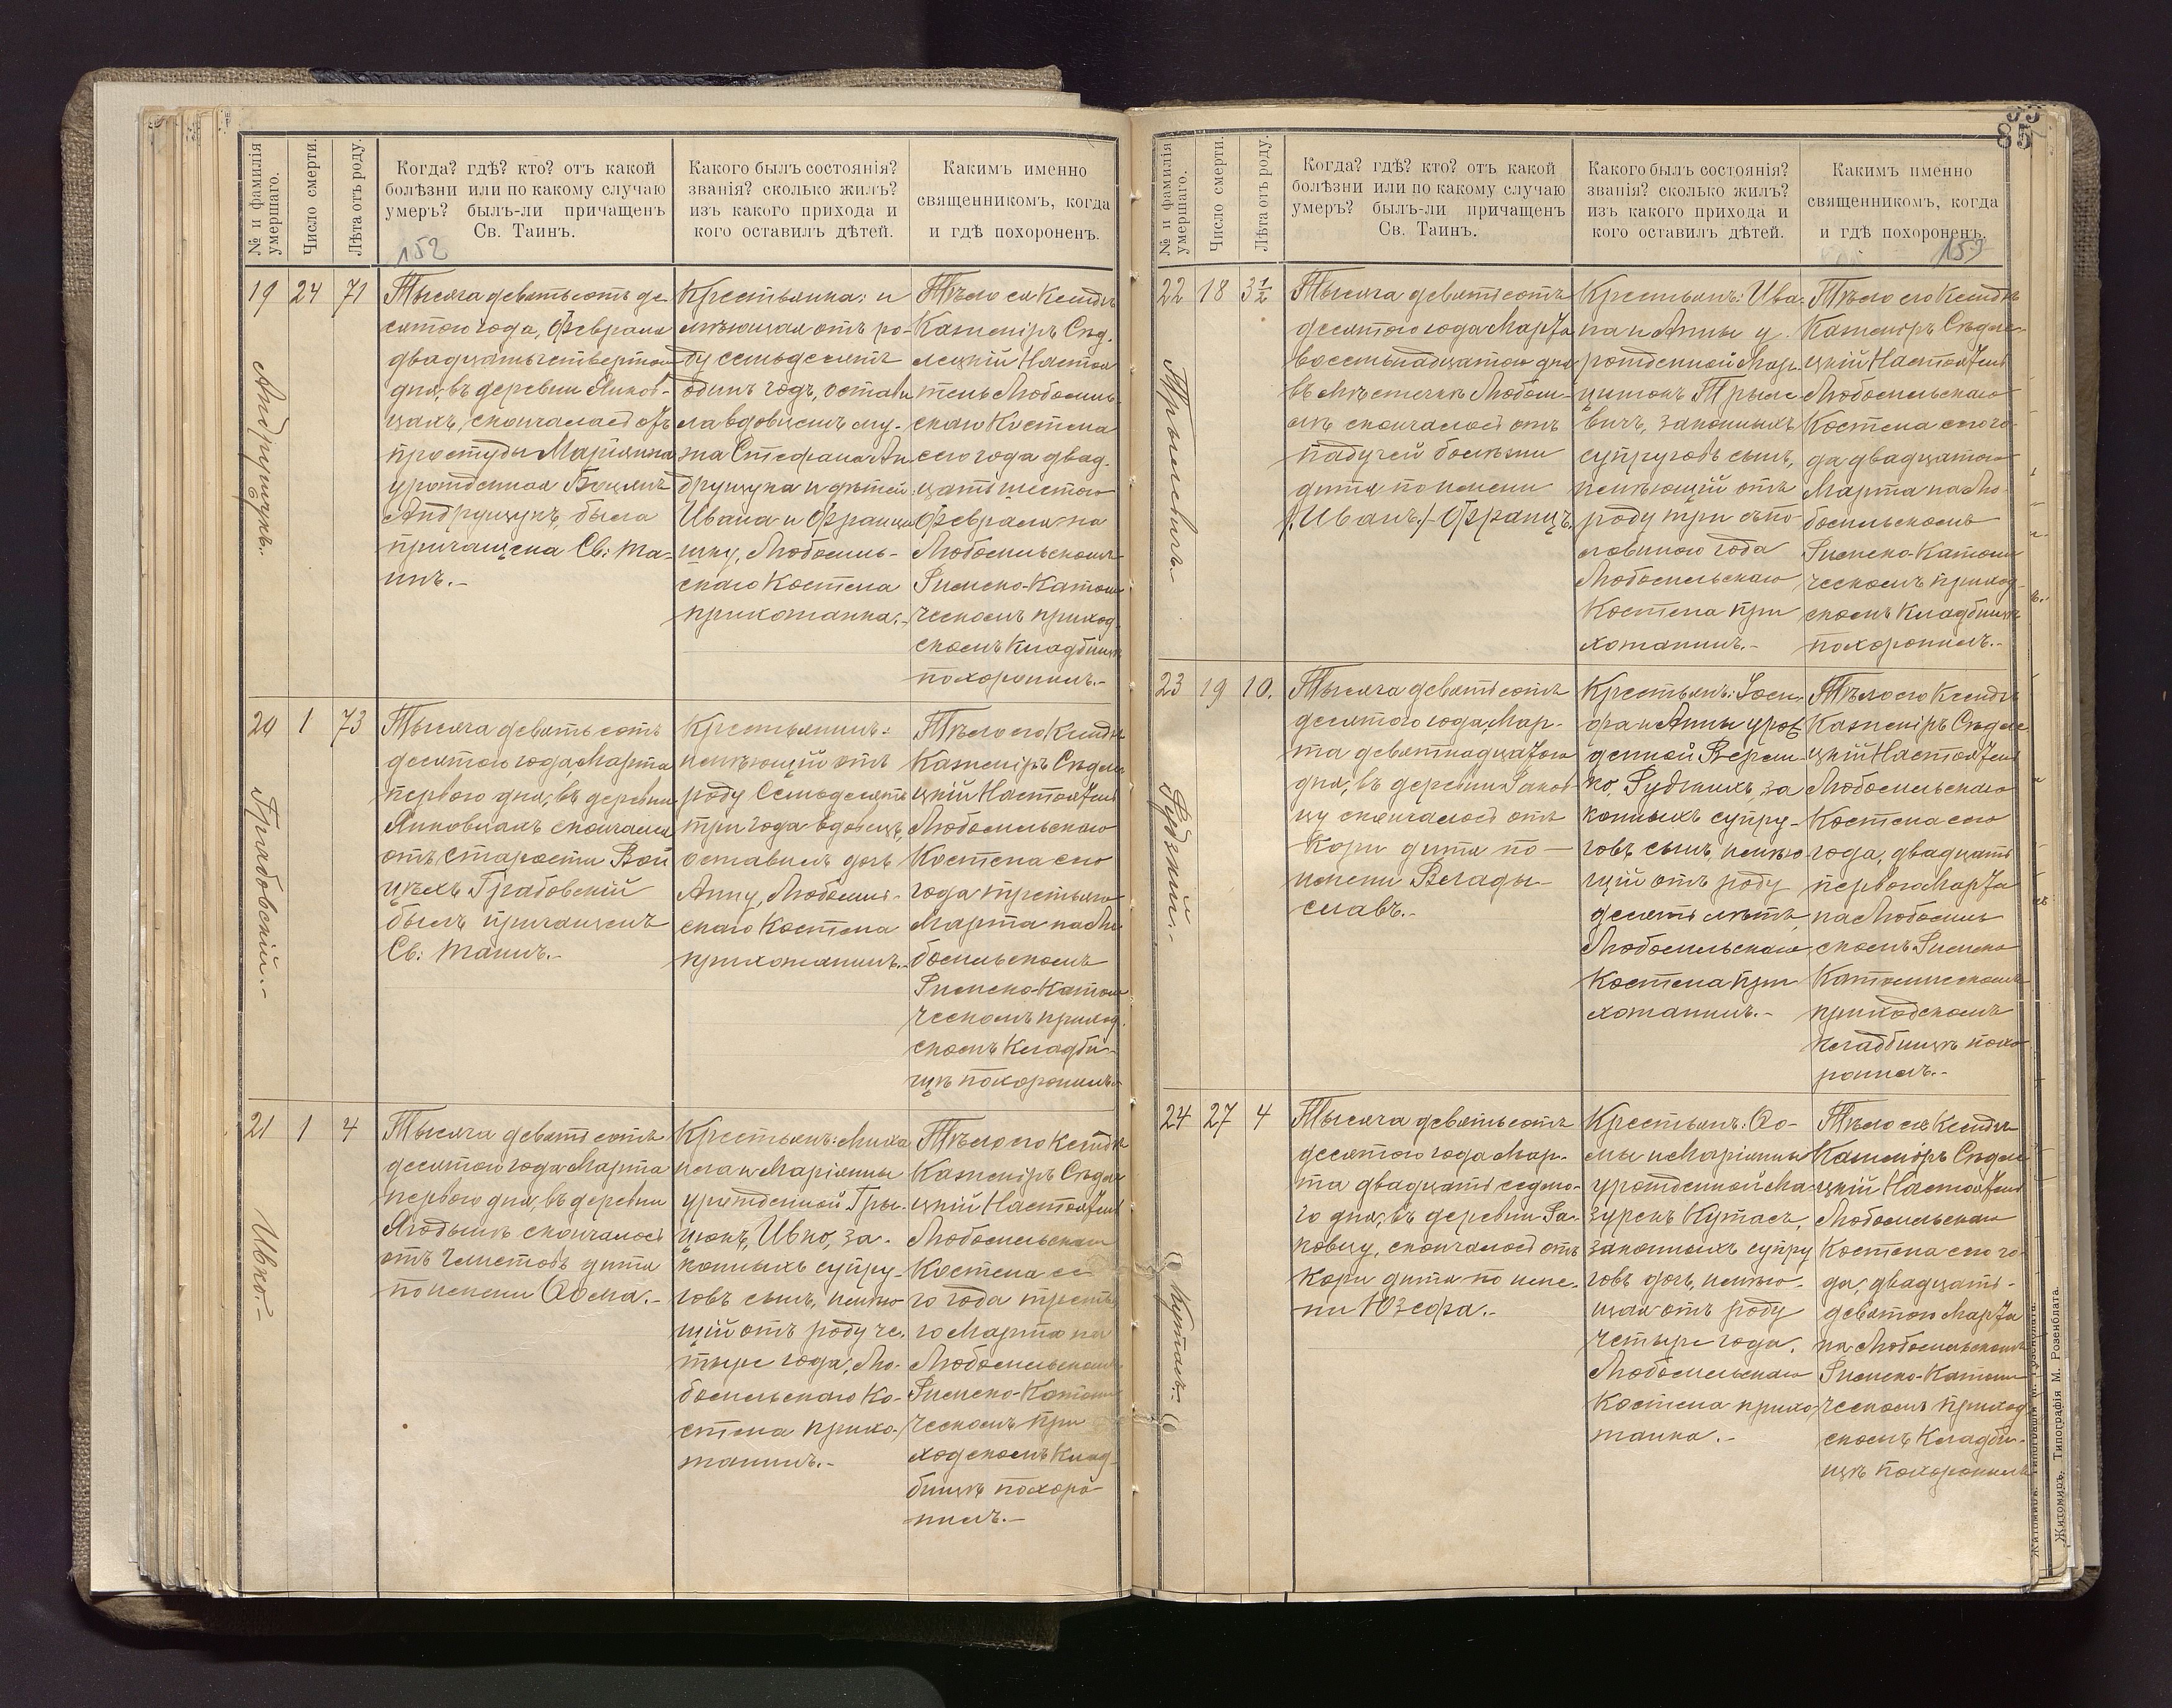 № и фамилія
умершаго.
Число смерти.
Лѣта отъ роду.
Когда? гдѣ? кто? отъ какой
болѣзни или по какому случаю
умеръ? былъ-ли причащенъ
Св. Таинъ.
152
Какого былъ состоянія?
званія? сколько жилъ?
изъ какого прихода и
кого оставилъ дѣтей.
Какимъ именно
священникомъ, когда
и гдѣ похороненъ.
19
Андрущукъ.-
24
71
Тысяча девятьсотъ де-
сятого года, Февраля
двадцать четвертого
дня, въ деревни Янков-
цахъ, скончалась отъ
простуды Маріянна
урожденная
Андрущукъ, была
причащена Св: Та-
инъ.-
Крестьянка: и
мѣющая отъ ро-
ду семьдесятъ
одинъ годъ, остави
ла вдовцемъ му-
жа Стефана Ан
друщука и дѣтей
Ивана и Франци
шку, Любомль-
скаго Костела
прихожанка.-
Тѣло ея Ксендзъ
Казиміръ Сѣд-
лецкій Настоя
тель Любомль-
скаго Костела
сего года двад-
цать шестого
Февраля на
Любомльскомъ
Римско-Католи
ческомъ приход-
скомъ Кладбищѣ
похоронилъ.-
20
Грабовскій.-
1
73
Тысяча девятьсотъ
десятого года, Марта
перваго дня, въ деревни
Янковцахъ скончался
отъ старости Вой
цѣхъ Грабовскій
былъ причащенъ
Св: Таинъ.-
Крестьянинъ:
имѣющій отъ
роду Семьдесятъ
три года вдовецъ,
оставилъ дочь
Анну, Любомль-
скаго Костела
прихожанинъ.-
Тѣло его Ксендзъ
Казиміръ Сѣдле
цкій Настоятель
Любомльскаго
Костела сего
года третьяго
Марта на Лю
бомльскомъ
Римско-Католи
ческомъ приход-
скомъ Кладби-
щѣ похоронилъ.-
21
Ивко.-
1
4
Тысяча девятьсотъ
десятого года Марта
перваго дня, въ деревни
Ягодынѣ скончалось
отъ глистовъ дитя
по имени Ѳома.-
Крестьянъ: Миха
ила и Маріянны
урожденной Гры-
цюкъ, Ивко, за-
конныхъ супру-
говъ сынъ, имѣю
щій отъ роду че-
тыре года, Лю-
бомльскаго Ко-
стела прихо-
жанинъ.-
Тѣло его Ксендзъ
Казиміръ Сѣдле
цкій Настоятель
Любомльскаго
Костела се
го года третья
го Марта на
Любомльскомъ
Римско-Католи
ческомъ при
ходскомъ Клад-
бищѣ похоро
нилъ.-
85
№ и фамилія
умершаго.
Число смерти.
Лѣта отъ роду.
Когда? гдѣ? кто? отъ какой
болѣзни или по какому случаю
умеръ? былъ-ли причащенъ
Св. Таинъ.
Какого былъ состоянія?
званія? сколько жилъ?
изъ какого прихода и
кого оставилъ дѣтей.
Какимъ именно
священникомъ, когда
и гдѣ похороненъ.
153
22
18
3½
Тысяча девятьсотъ
десятого года Марта
восемьнадцатого дня
въ мѣстечкѣ Любом-
лѣ скончалось отъ
падучей болѣзни
дитя по имени
/:Иванъ:/ Францъ.
Крестьянъ: Ива-
на и Анны у-
рожденной
законныхъ
супруговъ сынъ,
имѣющій отъ
роду три съ по-
ловиною года
Любомльскаго
Костела при
хожанинъ.-
Тѣло его Ксендзъ
Казиміръ Сѣдле-
цкій Настоятель
Любомльскаго
Костела сего го-
да двадцатого
Марта на Лю-
бомльскомъ
Римско-Католи
ческомъ приход-
скомъ Кладбищѣ
похоронилъ.-
23
Рудзкій.-
19
10.
Тысяча девятьсотъ
десятого года, Мар-
та девятнадцатого
дня, въ деревни
скончалось отъ
кори дитя по-
имени Влады-
славъ.-
Крестьянъ: Іоси-
фа и Анны урож
денной Верем-
ко, Рудзкихъ, за
конныхъ супру-
говъ сынъ, имѣю
щій отъ роду
десять лѣтъ,
Любомльскаго
Костела при
хожанинъ.-
Тѣло его Ксендзъ
Казиміръ Сѣдле
цкій Настоятель
Любомльскаго
Костела сего
года, двадцать
перваго Марта
на Любомль
скомъ Римско
Католическомъ
приходскомъ
кладбищѣ похо
ронилъ.-
24
Куташъ.-
27
4
Тысяча девятьсотъ
десятого года, Мар-
та двадцать седьмо-
го дня, въ деревни Ра-
ковцу, скончалось отъ
кори дитя по име-
ни Юзефа.-
Крестьянъ: Ѳо-
мы и Маріянны
урожденной Ма-
зурекъ Куташъ,
законныхъ супру
говъ дочь, имѣю
щая отъ роду
четыре года,
Любомльскаго
Костела прихо
жанка.-
Тѣло ея Ксендзъ
Казиміръ Сѣдле
цкій Настоятель
Любомльскаго
Костела сего го-
да, двадцать-
девятого Марта
на Любомльскомъ
Римско-Католи
ческомъ приход
скомъ Кладби-
щѣ похоронилъ
Житомиръ. Типографія М. Розенблата.
Житомиръ. Типографія М. Розенблата.